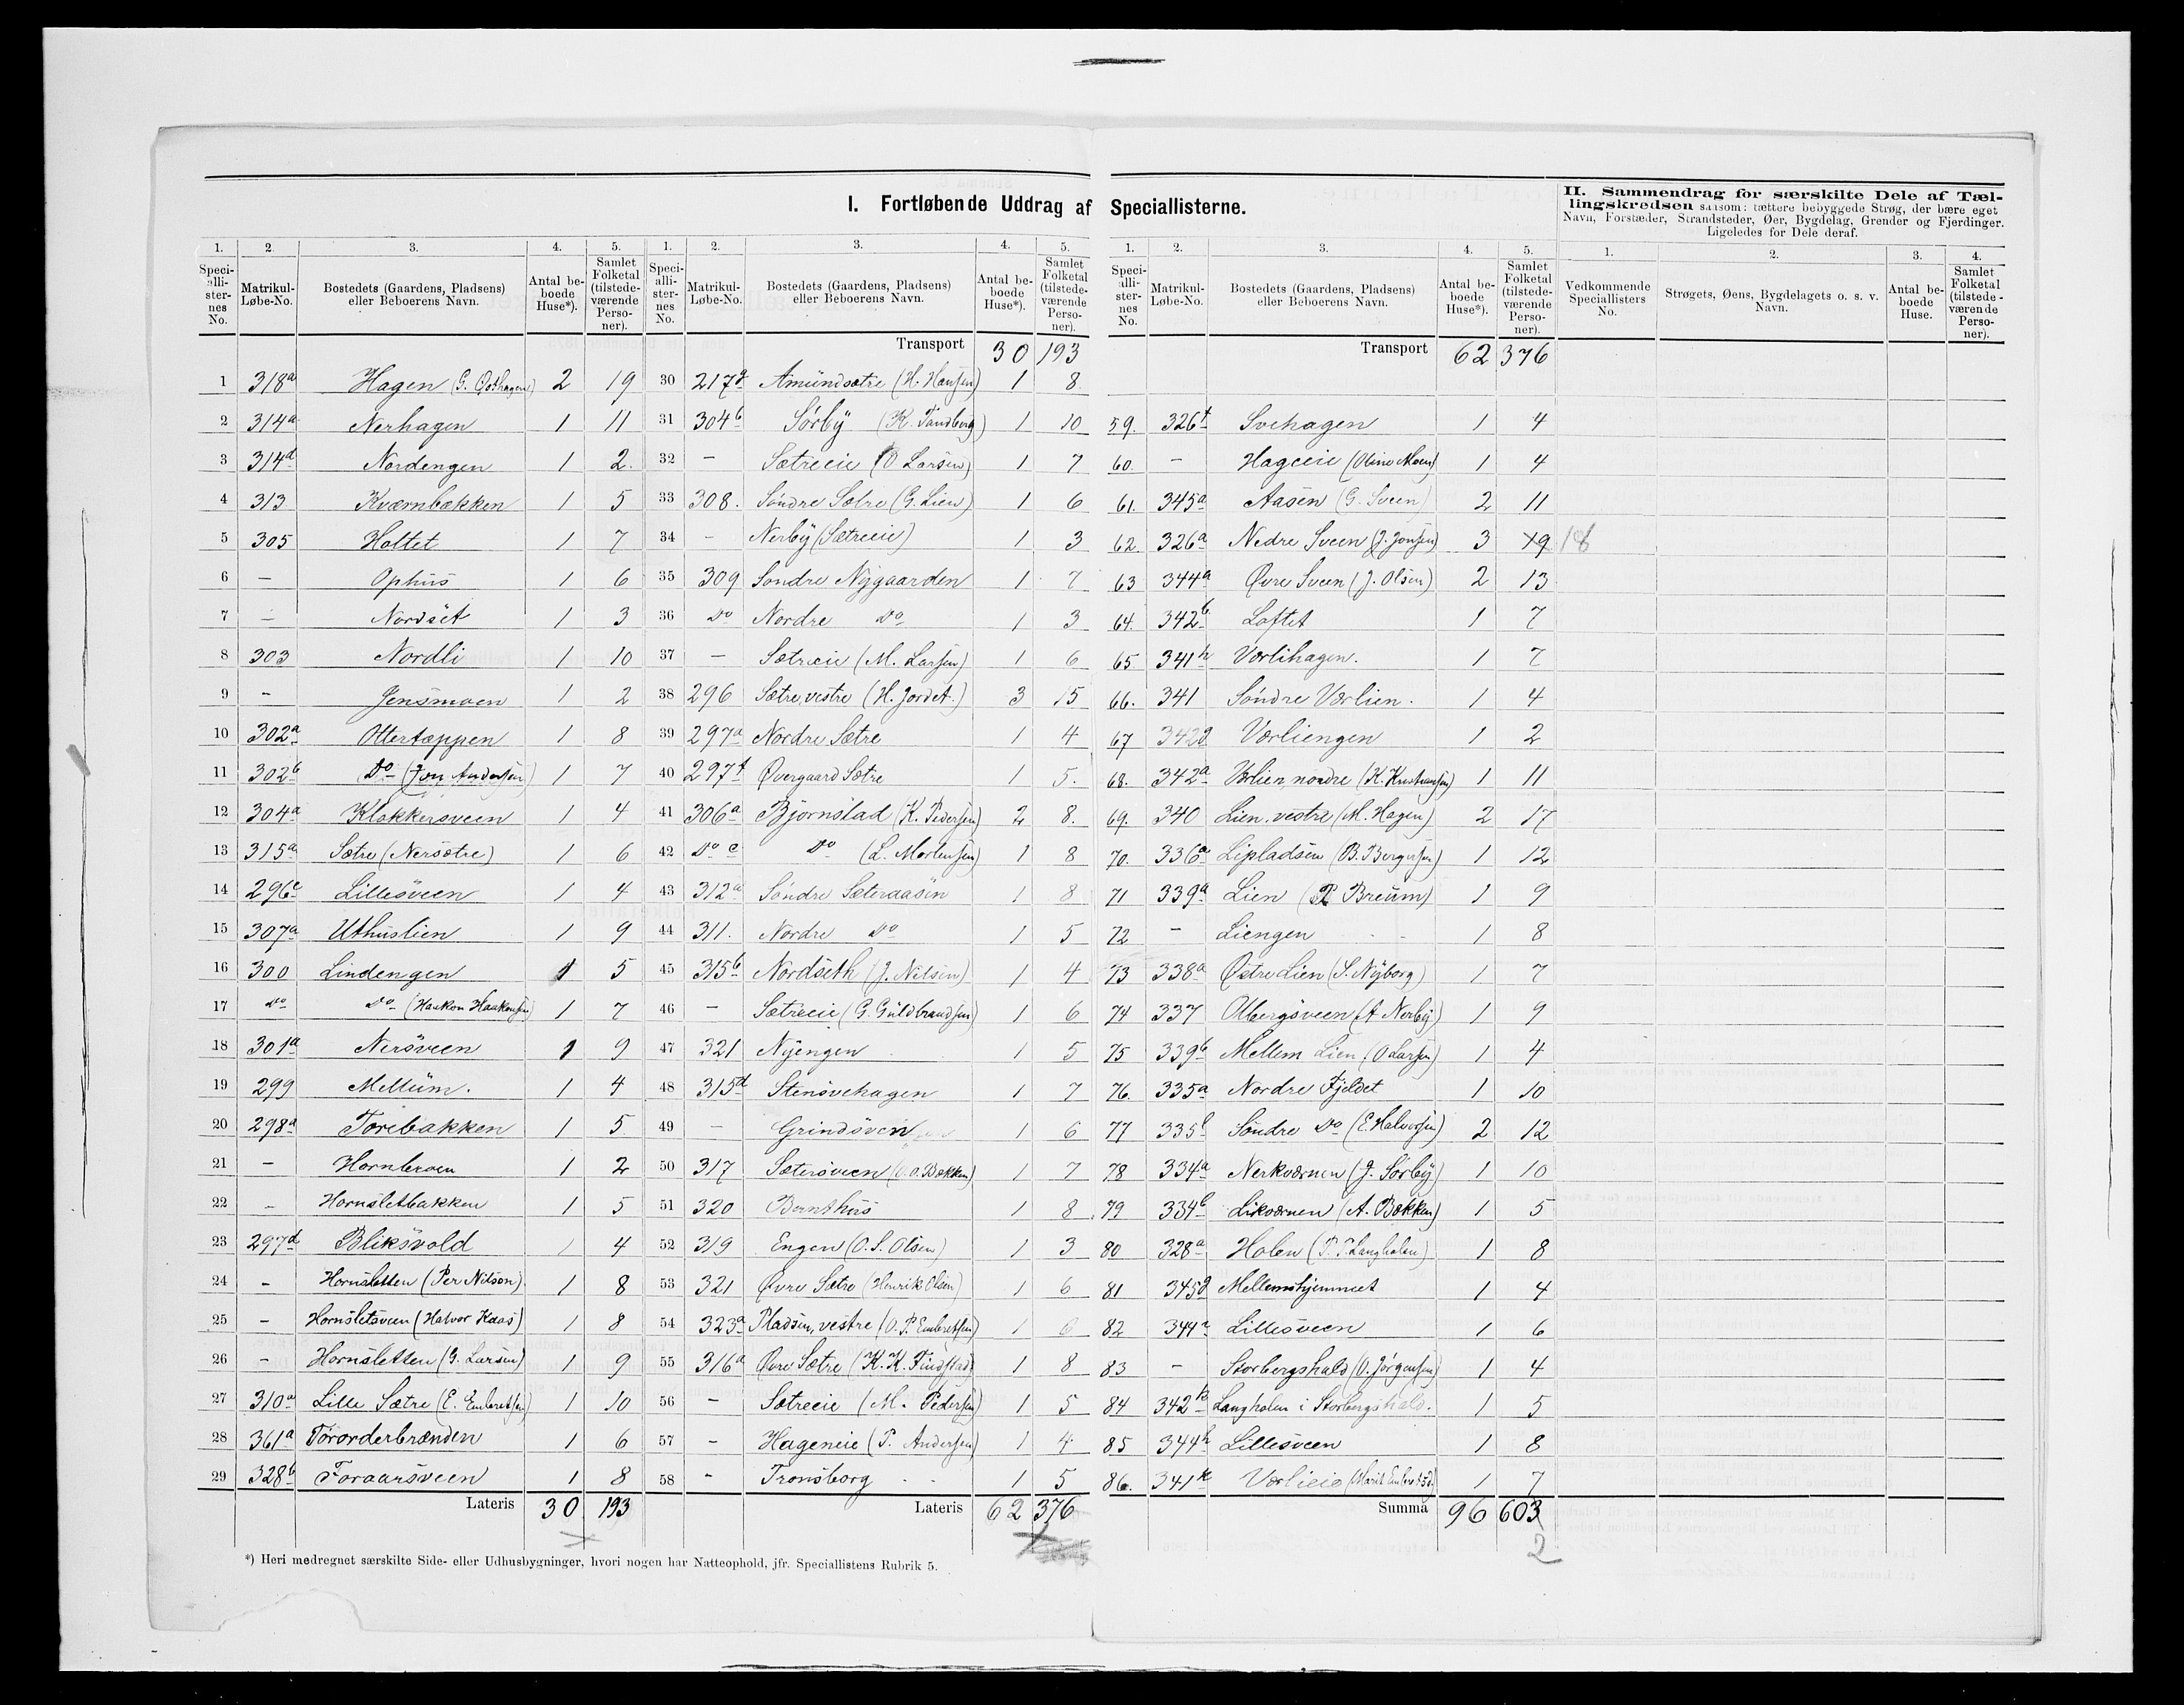 I. Fortløbende Uddrag af Speciallisterne.
II. Sammendrag for særskilte Dele af Tællingskredsen saasom: tættere bebyggede Strøg, der bære eget
Navn, Forstæder, Strandsteder, Øer, Bygdelag, Grender og Fjerdinger.
Ligeledes for Dele deraf.
1. 2. 3. 4. 5.
Speciallisternes No. Matrikul-Løbe-No. Bostedets (Gaardens, Pladsens) eller Beboerens Navn. Antal beboede Huse*). Samlet Folketal (tilstedeværende Personer).
1 318a Hagen (G. Østhagen) 2 19
2 314a Nerhagen 1 11
3 314d Nordengen 1 2.
4 313 Kværnbækken 1 5
5 305 Holtet 1 7
6 - Ophus 1 6
7 - Nordset 1 3
8 303 Nordli 1 10
9 - Jensmoen 1 2
10 302a Ottertappen 1 8
11 302b Do (Jon Andersen) 1 7
12 304a Klokkersveen 1 4
13 315a Sætre (Nersætre) 1 6
14 296c Lillesveen 1 4
15 307a Uthuslien 1 9
16 300 Lindengen 1 5
17 Do Do (Haakon Haakensen) 1 7
18 301a Nersveen 1 9
19 299 Mellum. 1 4
20 298a Torebakken 1 5
21 - Hornbroen 1 2
22 - Hornsletbakken 1 5
23 297d Bliksvold 1 4
24 - Hornsletten (Per Nilson). 1 8
25 - Hornsletsveen (Halvor Kaas) 1 8
26 - Hornsletten (G. Larsen) 1 9
27 310a Lille Sætre (E. Embretsen) 1 10
28 361a Förorderbrænden 1 6
29 328b Foraarsveen 1 8
Lateris 30 193
1. 2. 3. 4. 5.
Speciallisternes No. Matrikul-Løbe-No. Bostedets (Gaardens, Pladsens) eller Beboerens Navn. Antal beboede Huse*). Samlet Folketal (tilstedeværende Personer).
Transport 30 193
30 217a Amundsætre (H. Hansen) 1 8.
31 304b Sørby (K. Tandberg) 1 10
32 - Sætreeie (O Larsen) 1 7
33 308. Søndre Sætre (G. Lien) 1 6
34 - Nerby (Sætreeie) 1 3
35 309 Søndre Nygaarden 1 7
36 Do Nordre Do 1 3
37 - Sætreeie (M. Larsen) 1 6
38 296 Sætre, vestre (H. Jordet.) 3 15
39 297a Nordre Sætre 1 4
40 297f Øvergaard Sætre 1 5.
41 306a Bjørnstad (K. Pedersen) 2 8.
42 Do c Do (L. Mortensen) 1 8
43 312a Søndre Sæteraasen 1 8
44 311. Nordre Do 1 5
45 315b Nordseth (J. Nilsen) 1 4
46 - Sætreeie (G. Guldbrandsen) 1 6
47 321 Nyengen 1 5
48 315d Stensvehagen 1 7
49 - Grindsveen 1 6
50 317 Sætersveen (O. O. Bækken) 1 7
51 320 Bernthus 1 8
52 319 Engen (O. S. Olsen) 1 3
53 321 Øvre Sætre (Henrik Olsen) 1 6
54 323a Pladsen, vestre (O. P. Embretsen) 1 6
55 316a Øvre Sætre (K. K. Findstad) 1 8
56 - Sætreeie (M. Pedersen) 1 5
57 - Hageneie (P. Andersen) 1 4
58 - Tronsborg 1 5
Lateris 62 376
1. 2. 3. 4. 5.
Speciallisternes No. Matrikul-Løbe-No. Bostedets (Gaardens, Pladsens) eller Beboerens Navn. Antal beboede Huse*). Samlet Folketal (tilstedeværende Personer).
Transport 62 376
59. 326f Svehagen 1 4
60. - Hageeie (Oline Moen) 1 4
61. 345a Aasen (G. Sveen) 2 11
62. 326a Nedre Sveen (J. Jonsen) 3 19 18
63 344a Øvre Sveen (J. Olsen) 2 13
64. 342b Loftet 1 7
65. 341h Værlihagen. 1 7
66. 341 Søndre Værlien. 1 4
67 342d Værliengen 1 2
68. 342a Værlien, nordre (K. Kristiansen) 1 11
69. 340 Lien. vestre (M. Hagen) 2 17
70. 336a Lipladsen (B. Bergersen) 1 12
71 339a Lien (P Breum) 1 9
72 - Liengen 1 8
73 338a Østre Lien (S. Nyborg) 1 7
74 337 Olbergsveen (A Nerby) 1 9
75 339b Mellem Lien (O Larsen) 1 4
76. 335a Nordre Fjeldet 1 10
77 335b Søndre Do (E. Halvorsen) 2 12
78 334a Nerkværnen (J. Sørby) 1 10
79 334b Likværnen (A. Bækken) 1 5
80 328a Holen (P. P. Langholen) 1 8
81 345d Mellemshjemmet 1 4
82 344 Lillesveen 1 6
83 - Storbergshald (O. Jørgensen) 1 4
84 342k Langholen i Storbergshald. 1 5
85 344h Lillesveen 1 8
86. 341k Værlieie (Marit Embretsd.) 1 7
Summa 96 603
2
1. 2. 3. 4.
Vedkommende Speciallisters No. Strøgets, Øens, Bygdelagets o. s. v. Navn. Antal beboede Huse. Samlet Folketal (tilstedeværende Personer).
*) Heri medregnet særskilte Side- eller Udhusbygninger, hvori nogen har Natteophold, jfr. Speciallistens Rubrik 5.